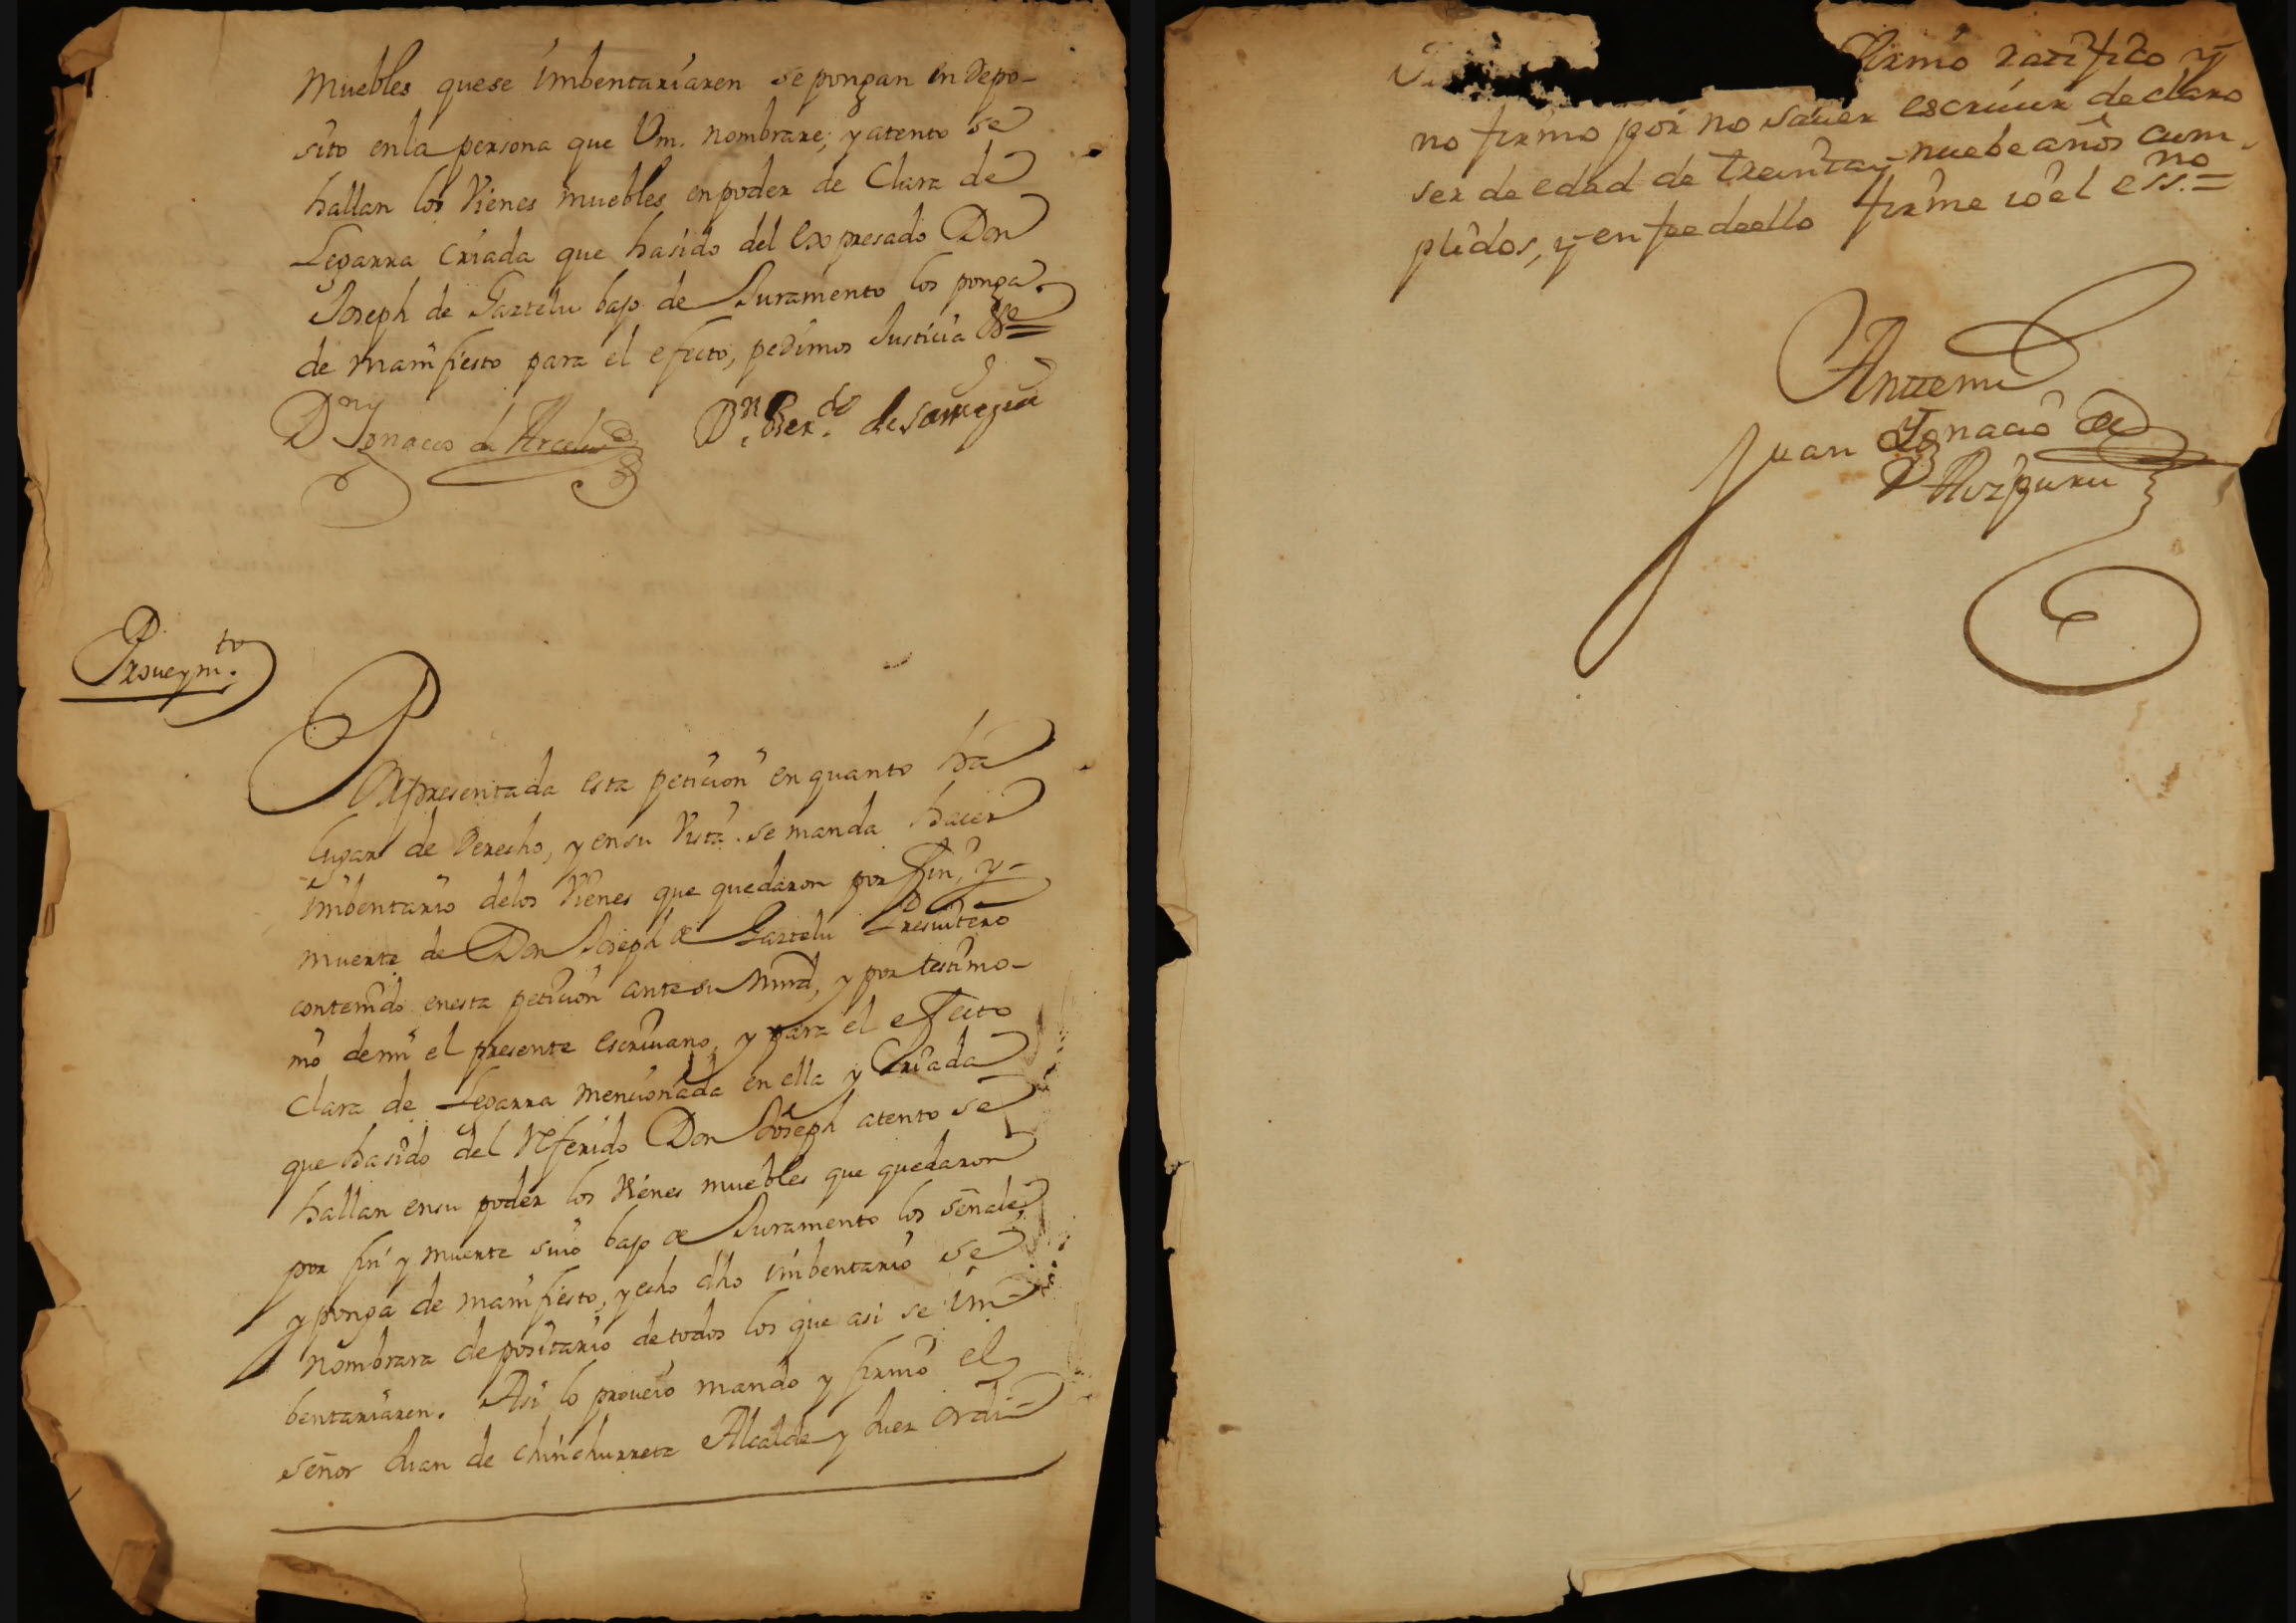 Muebles quese imbentariaren se pongan en Depo-
sito enla persona que Vm. nombrare; y atento se
hallan los Vienes muebles en poder de Clara de
Legarra criada que hasido del expresado Don
Joseph de Gaztelu bajo de Juramento los ponga
de manifiesto para el efecto, pedimos Justicia &ª=
Dn Ignacio de Arcelus Dn. Ber.do de
Proueym.to
Rpresentada esta peticion en quanto há
lugar de Derecho, y ensu Vista se manda hacer
imbentario delos Vienes que quedaron por fin, y-
muerte de Don Joseph de Gaztelu Presuitero
contenido enesta peticion ante su Mrd, y por testimo-
nio demi el presente escriuano, y para el efecto
Clara de Legarra mencionada en ella y Criada
que hasido del Referido Don Joseph atento se
hallan ensu poder los Vienes muebles que quedaron
por fin y muerte suio bajo de Juramento los señale,
y ponga de manifiesto, y echo dho imbentario se
nombrara depositario de todos los que asi se im-
bentariaren. Asi lo proueio mando y firmó el
señor Juan de Chinchurreta Alcalde y Juez ordi-
firmó ratifico y
no firmo por no sauer escriuir declaro
ser de edad de treinta y nuebe años cum-
plidos, y en fee de ello firme io el essno=
Antemi
Juan Ignacio de
Aozpuru